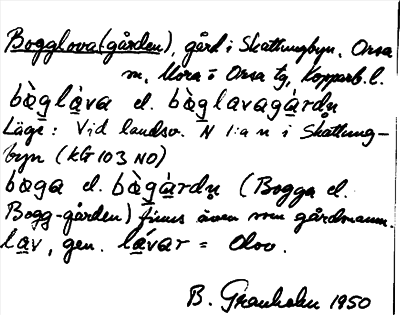 Bogglova(gården), gård i Skattungbyn, Orsa
sn, Mora o Orsa tg, Kopparb. l.
bòglàva el. bòglavagárdn
Läge: Vid landsv. N 1:a n i Skattung-
byn (KG 103 NO)
bòga el. bògárdn (Bogga el.
Bogg-gården) finns även som gårdnamn.
lav, gen. lávar = Olov.
B. Granholm 1950